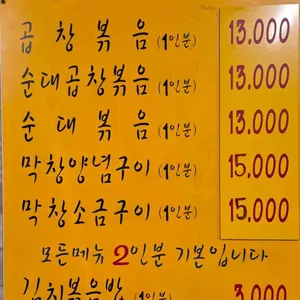 곱창볶음 (1인분) 13.000
순대곱창볶음 (1인분) 13.000
순대볶음 (1인분) 13.000
막창양념구이 (1인분) 15.000
막창소금구이 (1인분) 15.000
모든메뉴 2인분 기본입니다
김치볶음밥 (1인분) 3.000